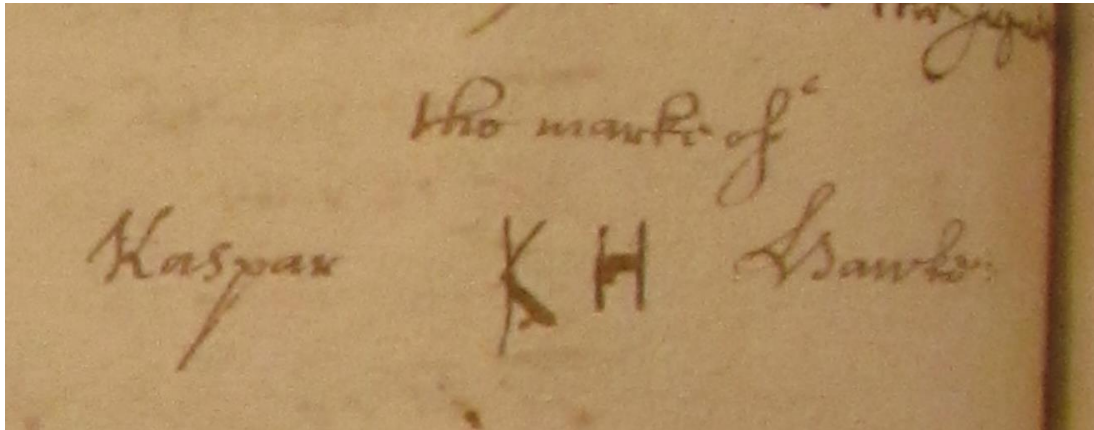 the marke of
Kaspar K H Hawke